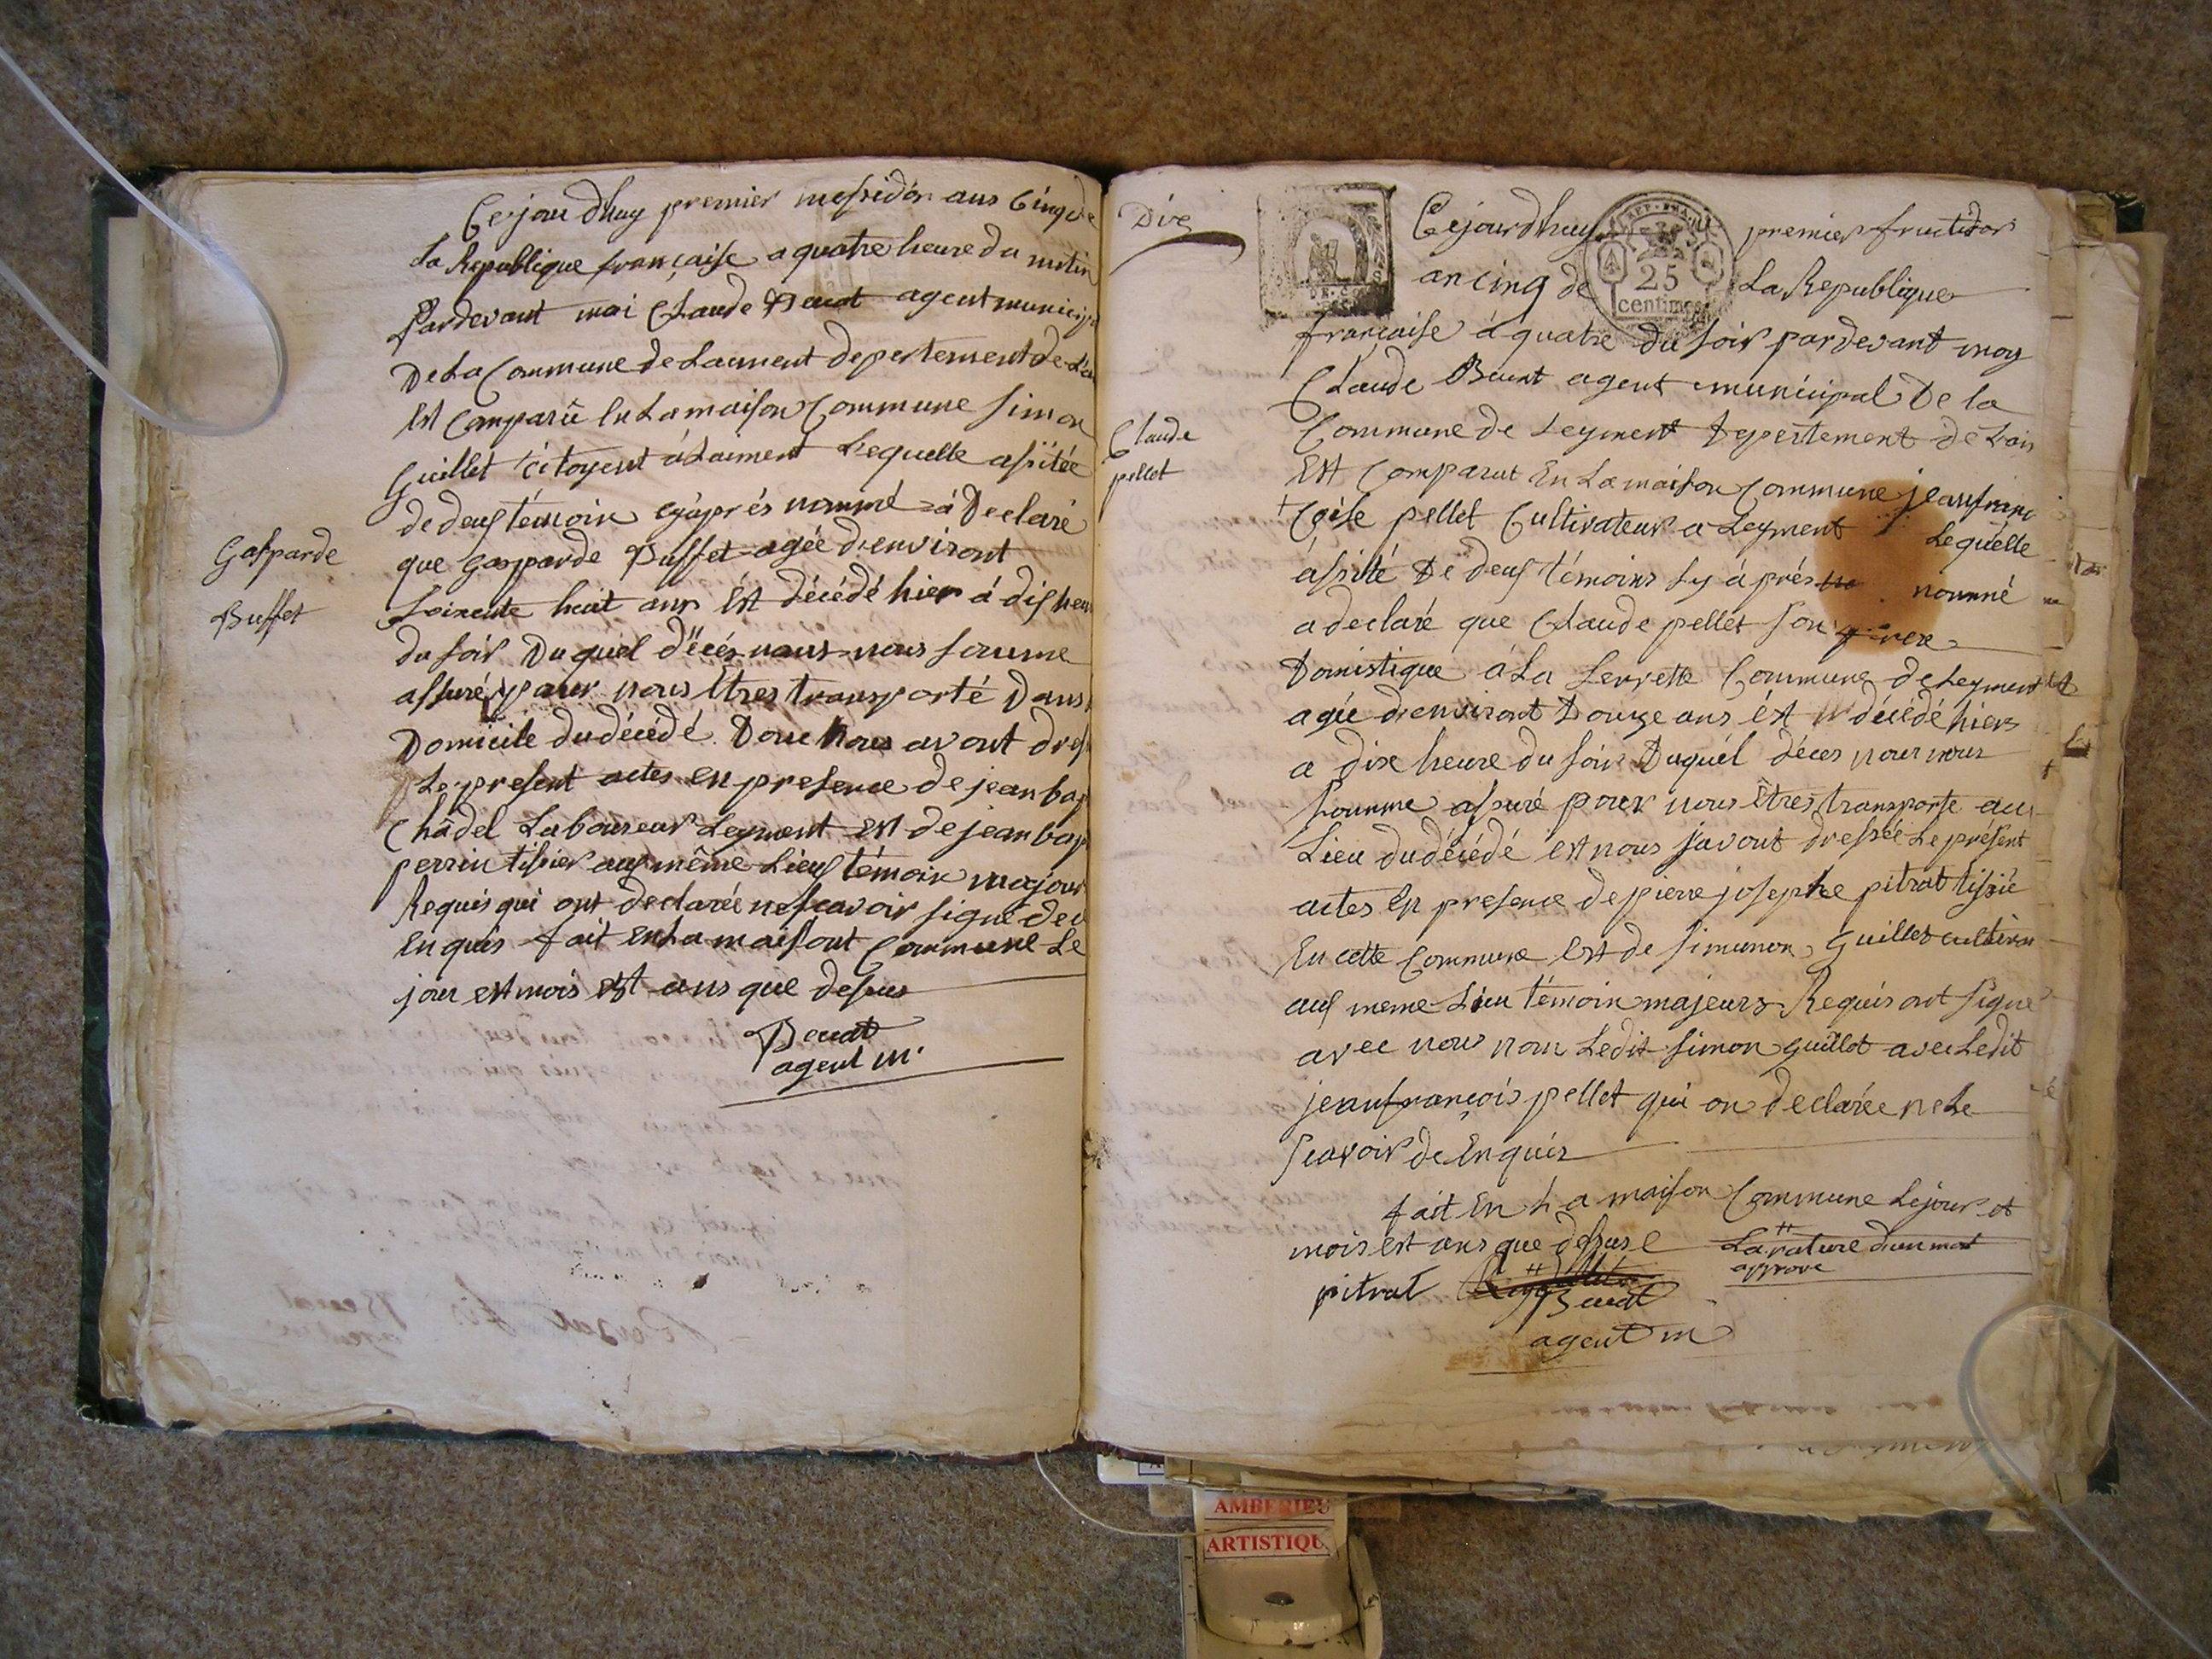 Cejour dhuy premier messidor ans Cinq de
La Republique française a quatre heure du matin
Pardevant moi Claude agent municip
De La Commune de Laiment depertement de L'ain
Est Comparû En La maison Commune Simon
Guillet citoyent à Laiment Lequelle assitée
de deus témoin cyàprés nommé à Declaré
que Gasparde Buffet agée d'environt
Soixente huit ans Est décédé hier à dis heu
du soir Duquel décés nous nous somme
assuré pour nous êtres transporté Dans
Domicile du décédé. Donc Nous avont dres
Le present actes en presence de jean bap
Chadel Laboureur Leyment est de jean bap
perrin tissier aus même Lieus témoin majour
Requis qui ont declarée ne scavoir signé de
Enquis fait en La maisont Commune Le
jour est mois est ans que dessus
agent m.
Gasparde
Buffet
Dix
Claude
pellet
Cejourdhuy premier fructidor
an cinq de La Republique
25
centimes
française à quatre du soir pardevant moy
Claude agent municipal De la
Commune de Leyment Depertement de L'ain
Est Comparut En La maison Commune jean fran
çoise pellet Cultivateur a Leyment Lequelle
assité De deus témoins sy àprés nommé
a declaré que Claude pellet son frere
Domistique à La Servette Commune de Leyment
agée d'environt Douze ans ést décédé hiers
a dix heure du soir Duquél déces nous nous
somme assuré pour nous êtres transporte aus
Lieu du décédé est nous javont dressée Le présent
actes En presence de pierre josephe pitrat tissié
En cette Commune Est de simunon Guillet cultiva
aus meme Lieu témoin majeurs Requis ont signé
avec nous non Ledit Simon Guillot avec Ledit
jean françois pellet qui on declarée ne Le
scavoir de Enquis
fait En La maison Commune Le jour et
mois est ans que dessus La rature d'un mot
approve
pitrat
agent m
AMBERIEU
ARTISTIQU